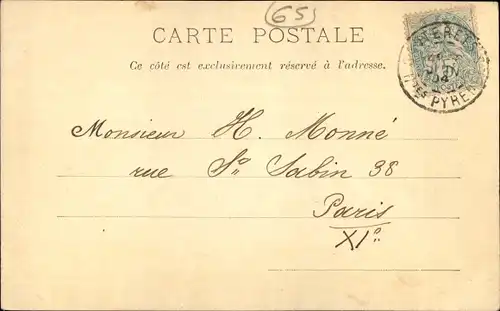 65
CARTE POSTALE
Ce côté est exclusivement réservé à l'adresse.
PYRÉN
Monsieur H. Monné
rue St Sabin 38
Paris
XIe